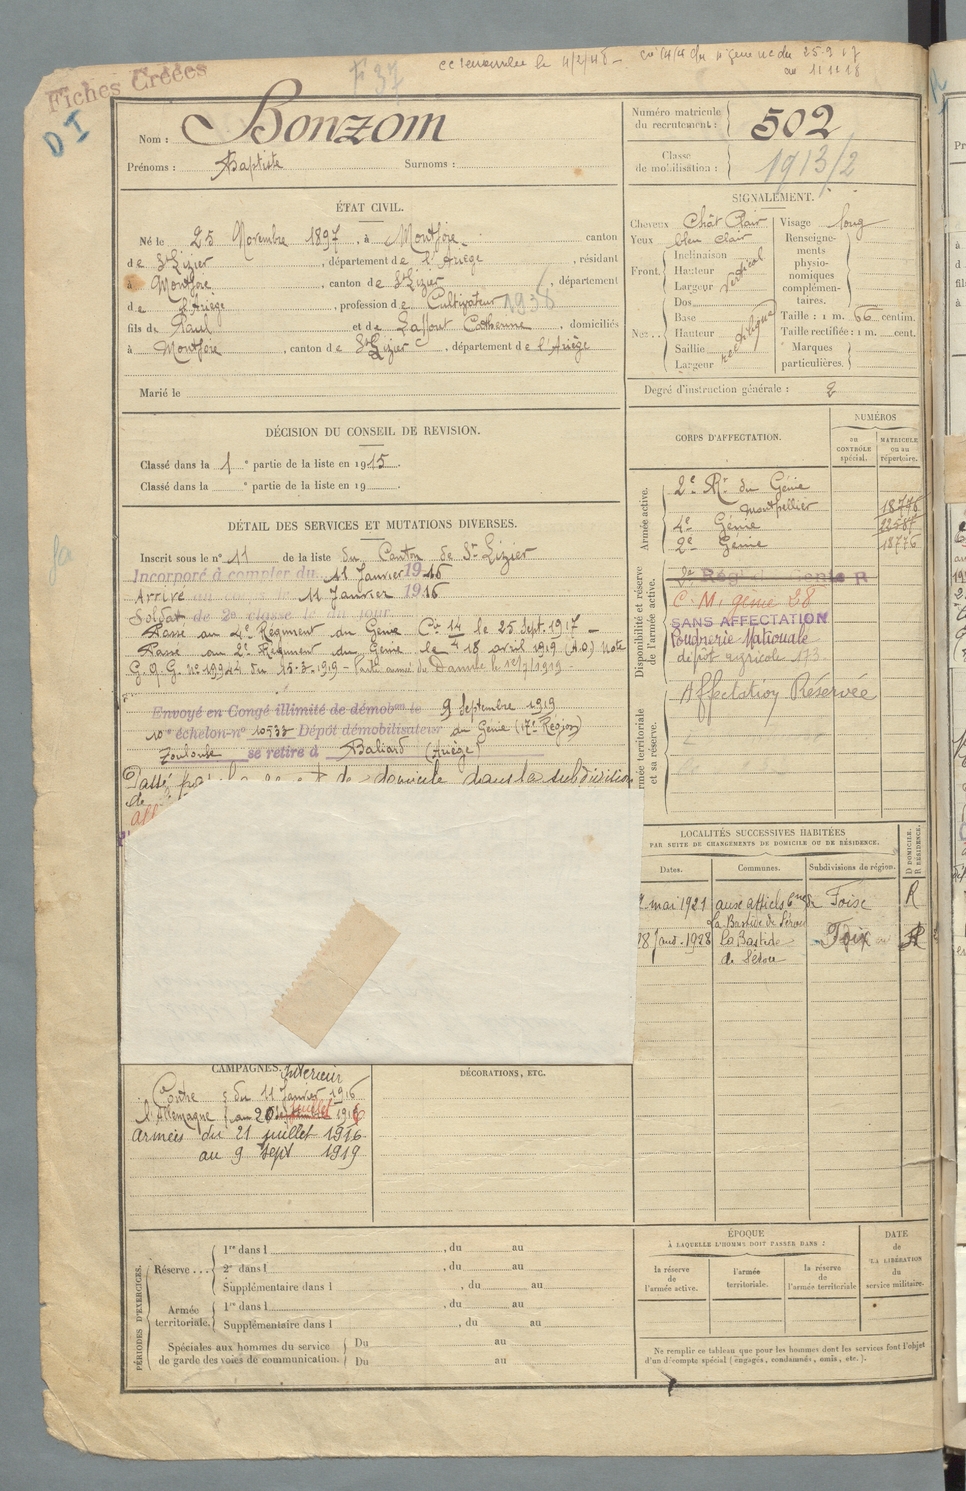 Fiches Créées
D I
F 37
25.9.17
au 11 11 18
Nom : Bonzom
Prénoms : Baptiste Surnoms :
Numéro matricule
du recrutement : 502
Classe
de mobilisation : 1913/2
ÉTAT CIVIL.
Né le 25 Novembre 1897, à Montjoie, canton
de St Lizier, département de l'Ariège, résidant
à Montjoie, canton de St Lizier, département
de l'Ariège, profession de Cultivateur 1938
fils de Paul et de Laffont Catherine, domiciliés
à Montjoie, canton de St Lizier, département de l'Ariège
Marié le
SIGNALEMENT.
Cheveux Chât Clair
Yeux bleu clair
Front. Inclinaison
Hauteur
Largeur
vertical
Nez... Dos
Base
Hauteur
Saillie
Largeur
rectiligne
Visage long
Renseigne-
ments
physio-
nomiques
complémen-
taires.
Taille : 1 m. 66 centim.
Taille rectifiée : 1 m. cent.
Marques
particulières.
Degré d'instruction générale : 2
DÉCISION DU CONSEIL DE REVISION.
Classé dans la 1 e partie de la liste en 1915.
Classé dans la e partie de la liste en 19
DÉTAIL DES SERVICES ET MUTATIONS DIVERSES.
Inscrit sous le n° 11 de la liste du Canton de St Lizier
Incorporé à compter du 11 Janvier 1916
Arrivé au corps le 11 Janvier 1916
Soldat de 2e classe le du jour.
Passé au 4e Régiment du Génie Cie 14 le 25 Sept. 1917
Passé au 2e Régiment du Génie le 18 avril 1919 (A.O) Note
G.Q.G. n° 19944 du 15.3.1919 - Partie armée du Danube le
Envoyé en Congé illimité de démobon le 9 Septembre 1919
10e échelon n° 10533 Dépôt démobilisateur du Génie (17e Région)
Toulouse se retire à Baliard (Ariège)
Passé de domicile dans la subdivision
de
CORPS D'AFFECTATION.
NUMÉROS
au
CONTRÔLE
spécial.
MATRICULE
ou au
répertoire.
Armée active.
2e Rt du Génie
Montpellier 18776
4e Génie 22587
2e Génie 18776
Disponibilité et réserve
de l'armée active.
C.M. génie 28
SANS AFFECTATION
Poudrerie Nationale
dépôt agricole 173
Armée territoriale
et sa réserve.
Affectation Réservée
LOCALITÉS SUCCESSIVES HABITÉES
PAR SUITE DE CHANGEMENTS DE DOMICILE OU DE RÉSIDENCE.
Dates. Communes. Subdivisions de région. D DOMICILE. R RÉSIDENCE.
mai 1921 Foix R
La Bastide de Sérou
28 Janv. 1928 La Bastide Foix R
de Sérou
CAMPAGNES. Intérieur
Contre du 11 Janvier 1916
l'Allemagne au 20 juillet 1916
armées du 21 juillet 1916
au 9 sept 1919
DÉCORATIONS, ETC.
PÉRIODES D'EXERCICES.
Réserve... 1re dans l , du au
2e dans l , du au
Supplémentaire dans l , du au
Armée
territoriale. 1re dans l , du au
Supplémentaire dans l , du au
Spéciales aux hommes du service
de garde des voies de communication. Du au
Du au
ÉPOQUE
À LAQUELLE L'HOMME DOIT PASSER DANS :
la réserve
de
l'armée active.
l'armée
territoriale.
la réserve
de
l'armée territoriale
DATE
de
LA LIBÉRATION
du
service militaire.
Ne remplir ce tableau que pour les hommes dont les services font l'objet
d'un décompte spécial (engagés, condamnés, omis, etc.).